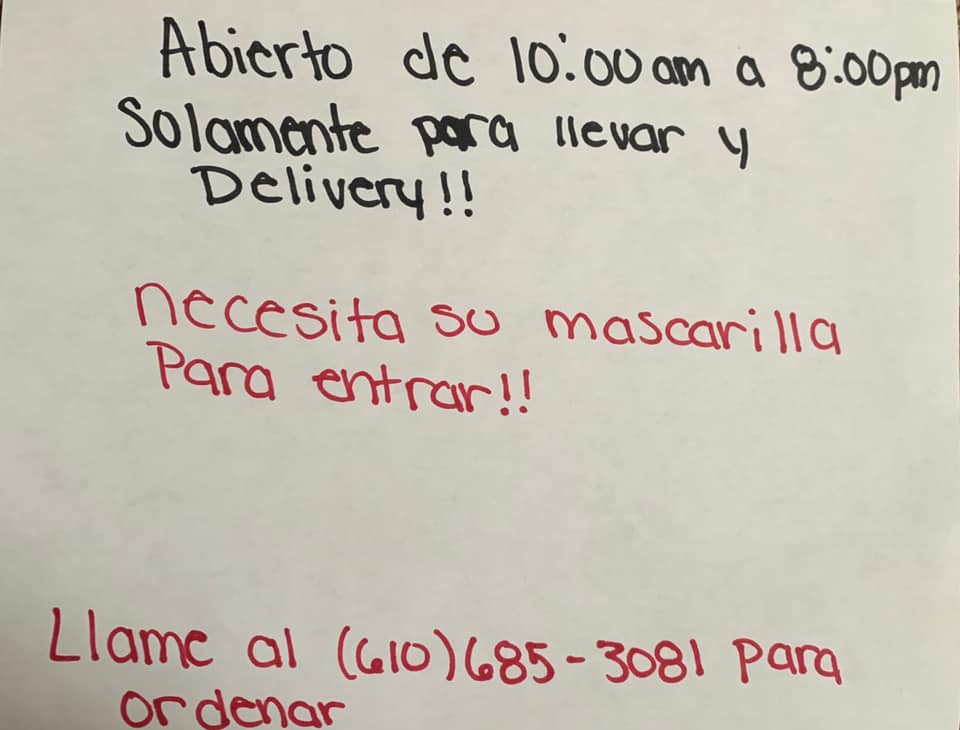 Abierto de 10:00am a 8:00pm
Solamente para llevar y
Delivery!!
necesita su mascarilla
Para entrar!!
Llame al (610)685-3081 para
ordenar